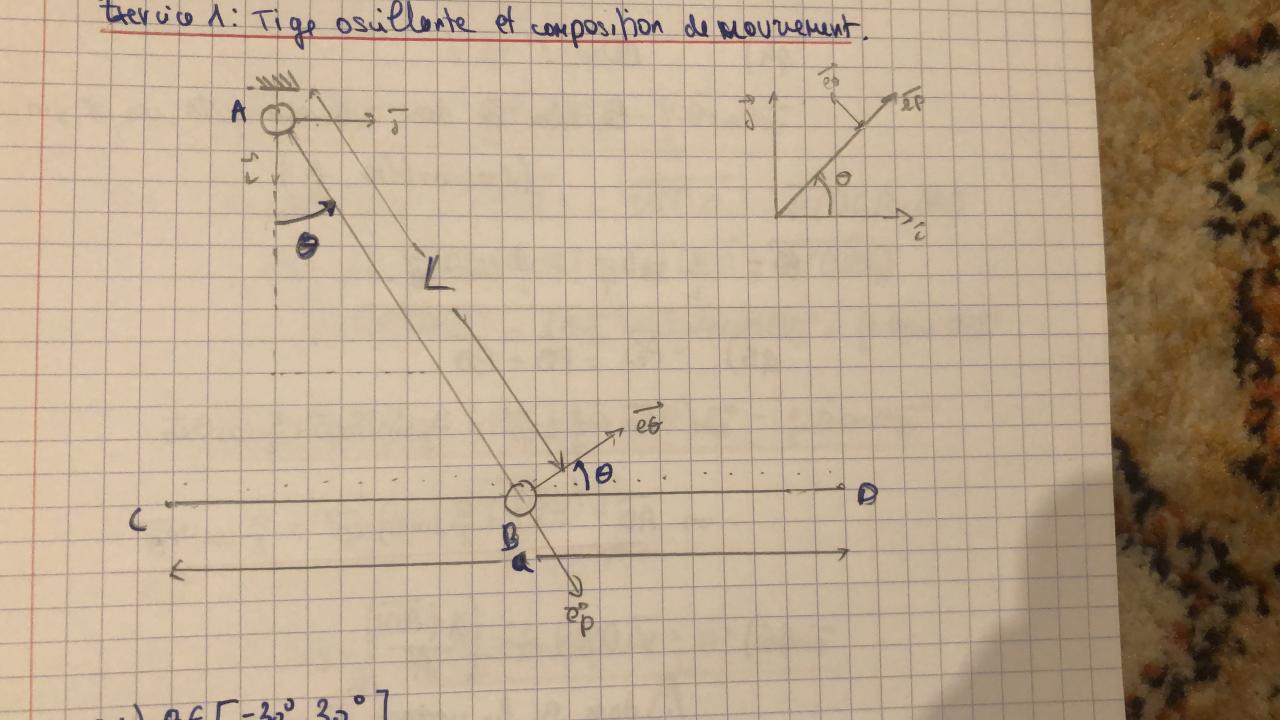 Exercice 1: Tige oscillante et composition de mouvement.
A
j
i
θ
L
j
eθ
eρ
θ
i
eθ
θ
C
D
B
a
eρ
θ∈[-30° 30°]